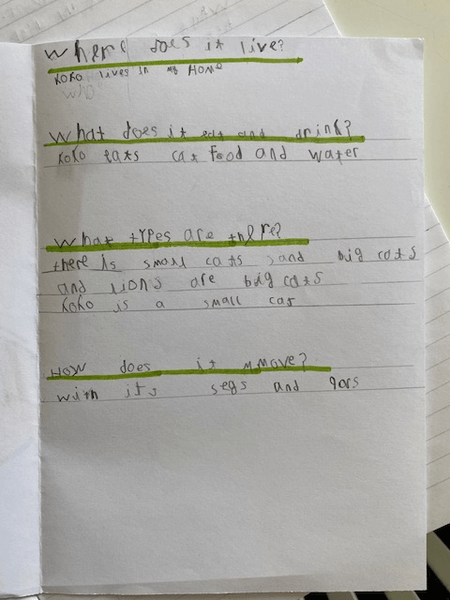 where does it live?
KoKo lives in my HOMe
who
What does it eat and drink?
KoKo eats cat Food and water
What types are there?
there is small cats and big cats
and lions are big cats
KoKo is a small cat
How does it mmove?
with its segs and